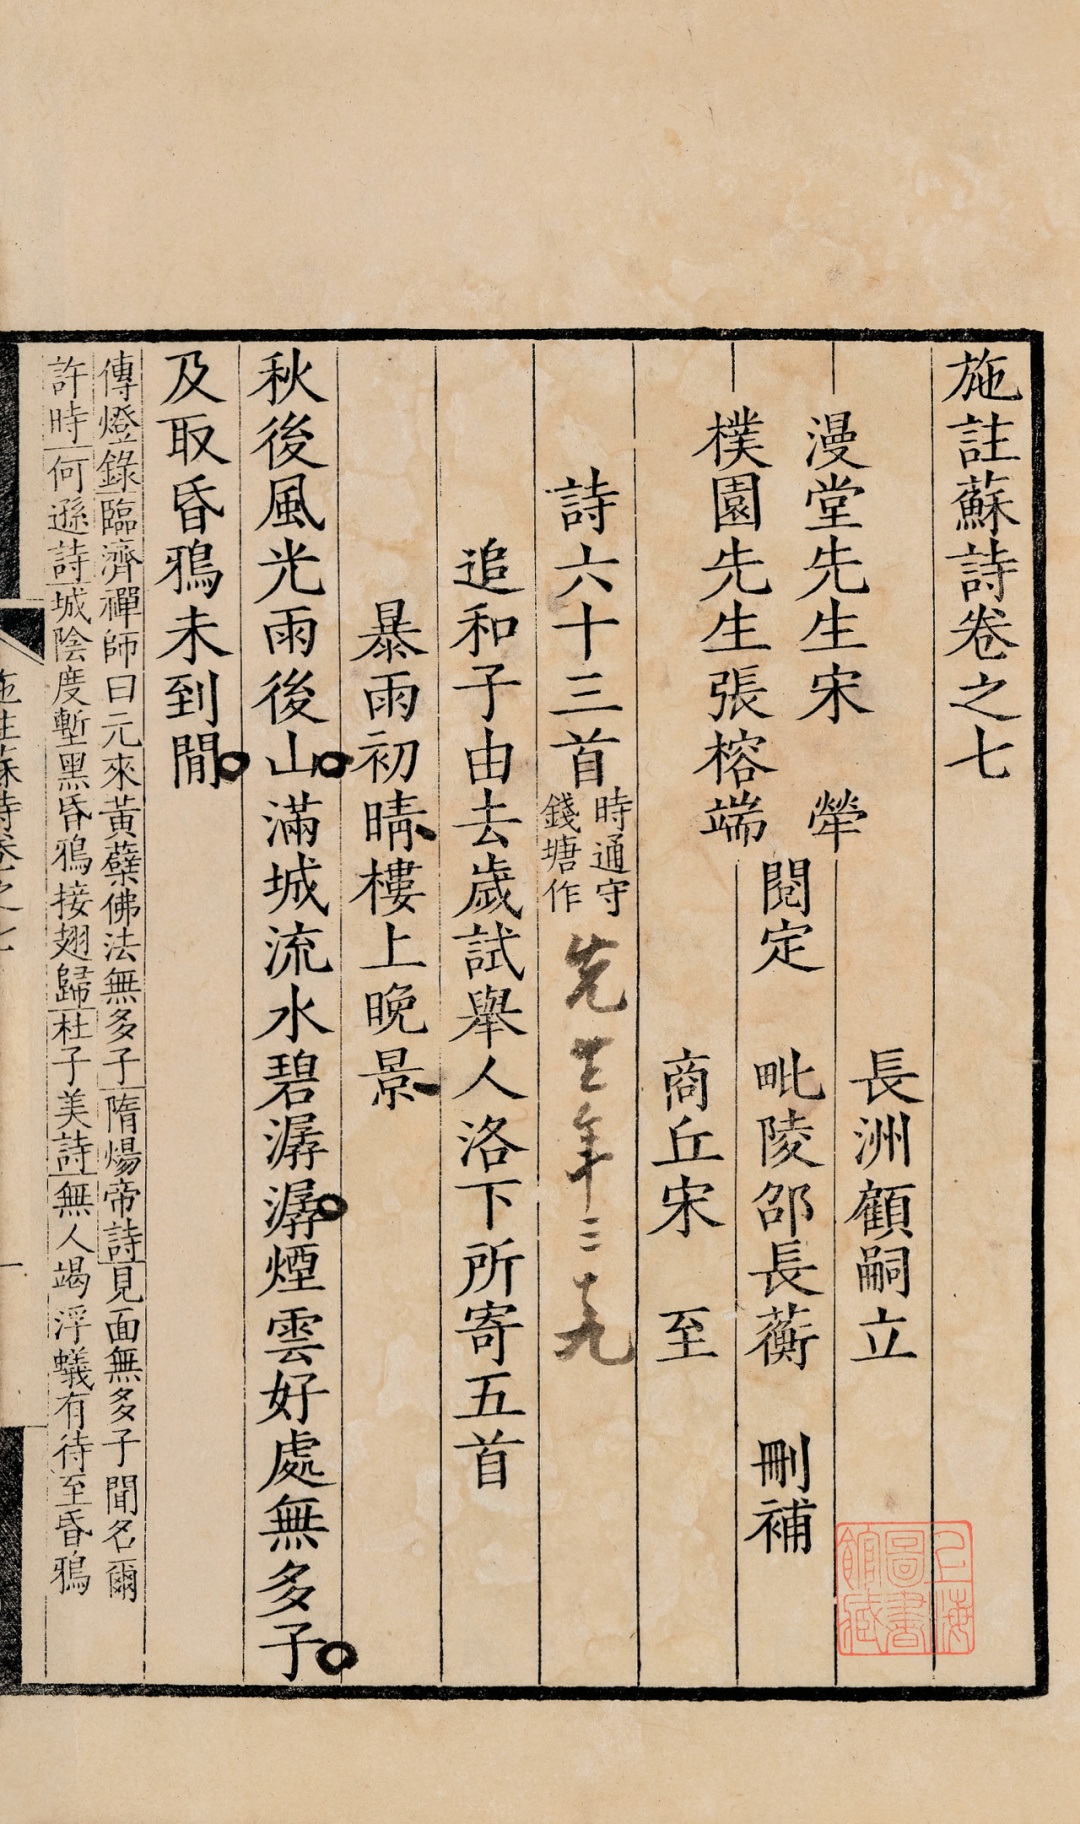 施註蘇詩卷之七
長洲顧嗣立
漫堂先生宋犖
閱定 毗陵邵長蘅 刪補
樸園先生張榕端
商丘宋 至
詩六十三首 時通守
錢塘作
先生年三十九
追和子由去歲試舉人洛下所寄五首
暴雨初晴樓上晚景
秋後風光雨後山滿城流水碧潺潺煙雲好處無多子
及取昏鴉未到閒
傳燈錄臨濟禪師曰元來黃蘗佛法無多子隋煬帝詩見面無多子聞名爾
許時何遜詩城陰度塹黑昏鴉接翅歸杜子美詩無人竭浮蟻有待至昏鴉
施註蘇詩卷之七
一
上海
圖書
館藏